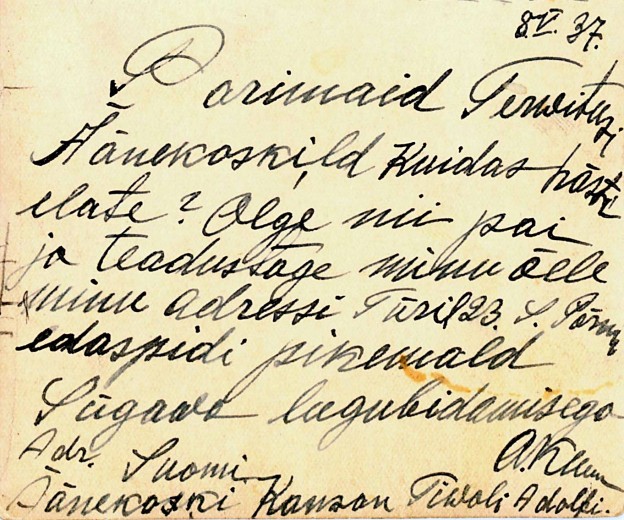 8.V. 37.
Parimaid Terwitusi
Äänekoskild Kuidas hästi
elate? Olge nii pai
ja teadustage minu õele
minu adressi Türil 23. S. Pärnu
edaspidi pikemald
Sügawa lugubidamisega
Adr. Suomi.
Äänekoski Kansan Tiwoli Adolfi.